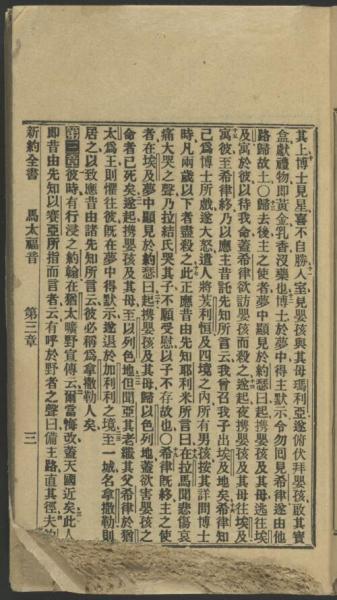 其上博士見星喜不自勝入室見嬰孩與其母瑪利亞遂俯伏拜嬰孩啟其寶
盒獻禮物即黃金乳香沒藥也博士於夢中得主默示令勿回見希律遂由他
路歸故土〇歸去後主之使者夢中顯見於約瑟曰起携嬰孩及其母逃往埃
及寓於彼以待我命蓋希律欲訪嬰孩而殺之遂起夜携嬰孩及其母往埃及
寓彼至希律終乃以應主昔託先知所言云我曾召我子出埃及地矣希律知
己爲博士所戲遂大怒遣人將伯利恒及四境之內所有男孩按其詳問博士
時凡兩歲以下者盡殺之此正應昔由先知耶利米所言曰在拉馬聞悲傷哀
痛大哭之聲乃拉結氏哭其子不願受慰以子不存故也〇希律既終主之使
者在埃及夢中顯見於約瑟曰起携嬰孩及其母歸以色列地蓋欲害嬰孩之
命者已死矣遂起携嬰孩及其母至以列色地但聞亞其老繼其父希律於猶
太爲王則懼往彼既在夢中得默示遂退於加利利之境至一城名拿撒勒則
居之以致應昔由諸先知所言云彼必稱爲拿撒勒人矣
第三章 彼時有行浸之約翰在猶太曠野宣傳云爾當悔改蓋天國近矣此人
即昔由先知以賽亞所指而言者云有呼於野者之聲曰備主路直其徑夫約
新約全書 馬太福音 第三章 三